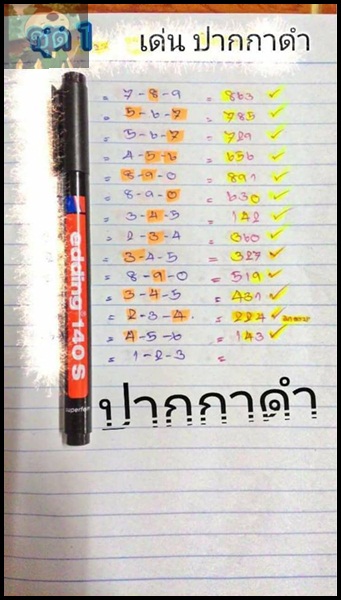 ชุด 1 เด่น ปากกาดำ
= 7-8-9 = 863 ✓
= 5-6-7 = 785 ✓
= 5-6-7 = 729 ✓
= 4-5-6 = 656 ✓
= 8-9-0 = 891 ✓
= 8-9-0 = 630 ✓
= 3-4-5 = 142 ✓
= 2-3-4 = 360 ✓
= 3-4-5 = 327 ✓
= 8-9-0 = 519 ✓
= 3-4-5 = 431 ✓
= 2-3-4 = 224 ✓
= 4-5-6 = 143 ✓
= 1-2-3 =
edding 140 S
ปากกาดำ